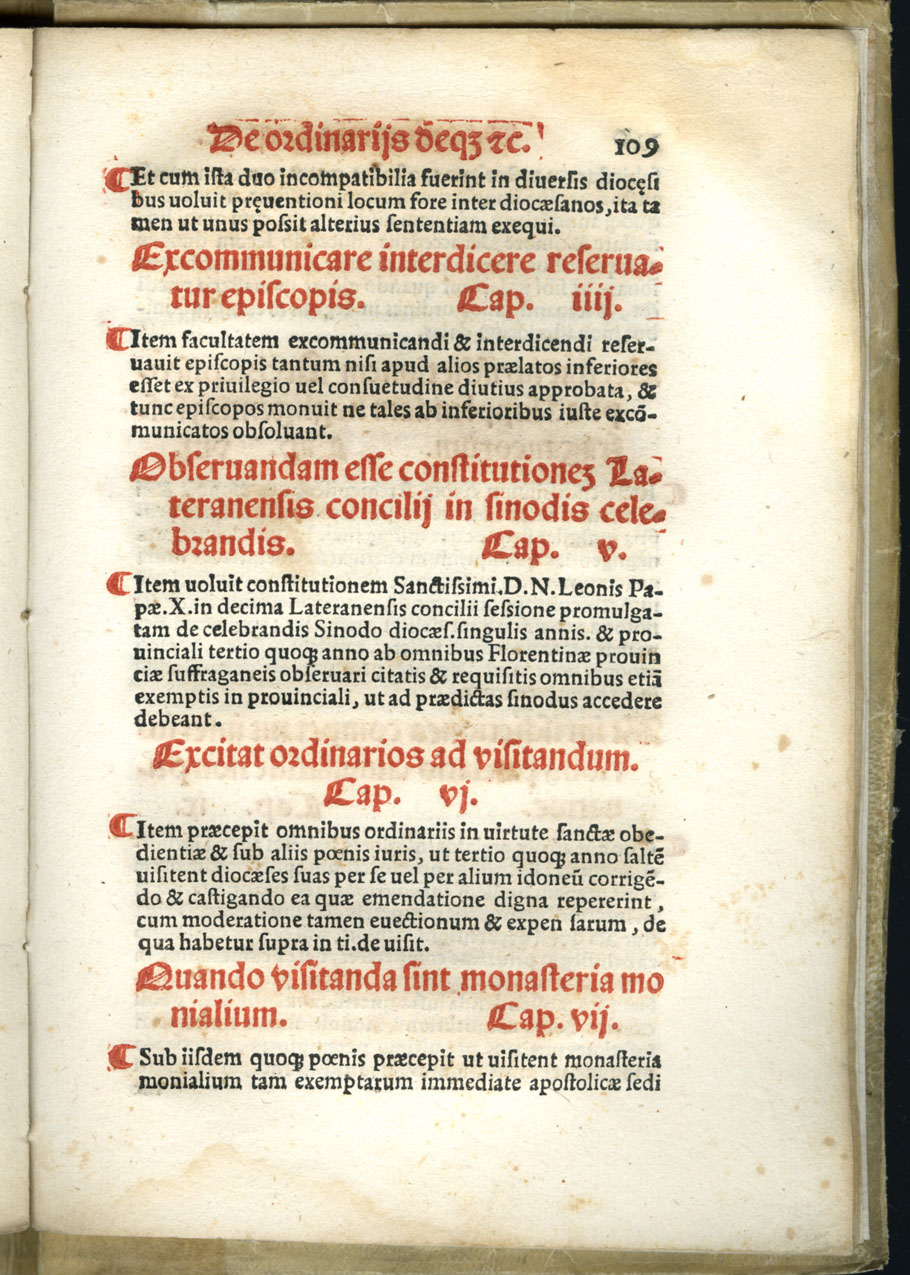 De ordinarijs deqꝫ ⁊c.
109
¶Et cum iſta duo incompatibilia fuerint in diuerſis diocęſi
bus uoluit pręuentioni locum fore inter diocæſanos, ita ta
men ut unus poſſit alterius ſententiam exequi.
Excommunicare interdicere reſerua-
tur epiſcopis. Cap. iiij.
¶Item facultatem excommunicandi & interdicendi reſer-
uauit epiſcopis tantum niſi apud alios prælatos inferiores
eſſet ex priuilegio uel conſuetudine diutius approbata, &
tunc epiſcopos monuit ne tales ab inferioribus iuſte excō-
municatos obſoluant.
Obſeruandam eſſe conſtitutioneꝫ La-
teranenſis concilij in ſinodis cele-
brandis. Cap. v.
¶Item uoluit conſtitutionem Sanctiſſimi.D.N.Leonis Pa-
pæ.X.in decima Lateranenſis concilii ſeſſione promulga-
tam de celebrandis Sinodo diocæſ.ſingulis annis. & pro-
uinciali tertio quoqꝫ anno ab omnibus Florentinæ prouin
ciæ ſuffraganeis obſeruari citatis & requiſitis omnibus etiā
exemptis in prouinciali, ut ad prædictas ſinodus accedere
debeant.
Excitat ordinarios ad viſitandum.
Cap. vj.
¶Item præcepit omnibus ordinariis in uirtute ſanctæ obe-
dientiæ & ſub aliis pœnis iuris, ut tertio quoqꝫ anno ſaltē
uiſitent diocæſes ſuas per ſe uel per alium idoneū corrigē-
do & caſtigando ea quæ emendatione digna repererint,
cum moderatione tamen euectionum & expen ſarum, de
qua habetur ſupra in ti.de uiſit.
Quando viſitanda ſint monaſteria mo
nialium. Cap. vij.
¶Sub iiſdem quoqꝫ pœnis præcepit ut uiſitent monaſteria
monialium tam exemptarum immediate apoſtolicæ ſedi